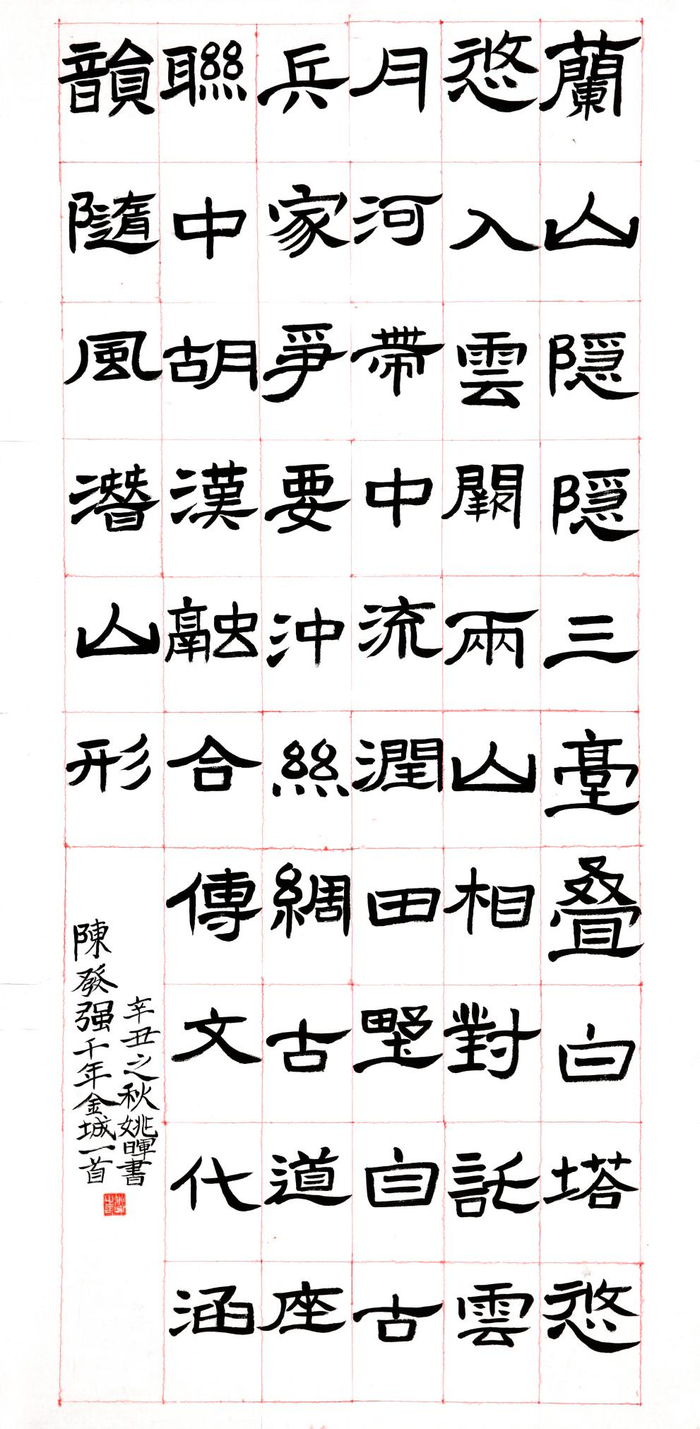 蘭山隐隐三臺叠白塔悠
悠入雲闕兩山相對託雲
月河帶中流潤田墅自古
兵家爭要沖絲綢古道座
聯中胡漢融合傳文代涵
韻隨風潛山形
陳發强千年金城一首
辛丑之秋姚暉書